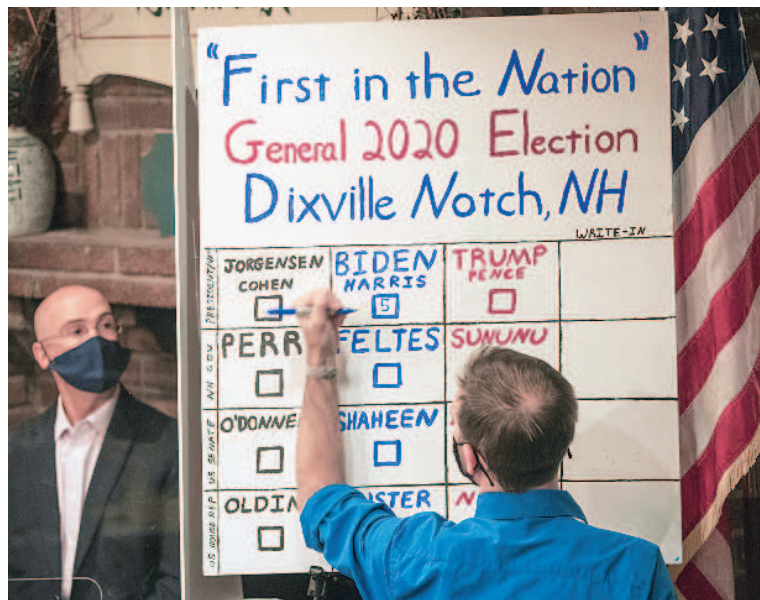 "First in the Nation"
General 2020 Election
Dixville Notch, NH
WRITE-IN
JORGENSEN
COHEN
BIDEN
HARRIS
5
TRUMP
PENCE
NH GOV
PERR
FELTES
SUNUNU
US SENATE
O'DONNE
SHAHEEN
US HOUSE REP
OLDIN
STER
N